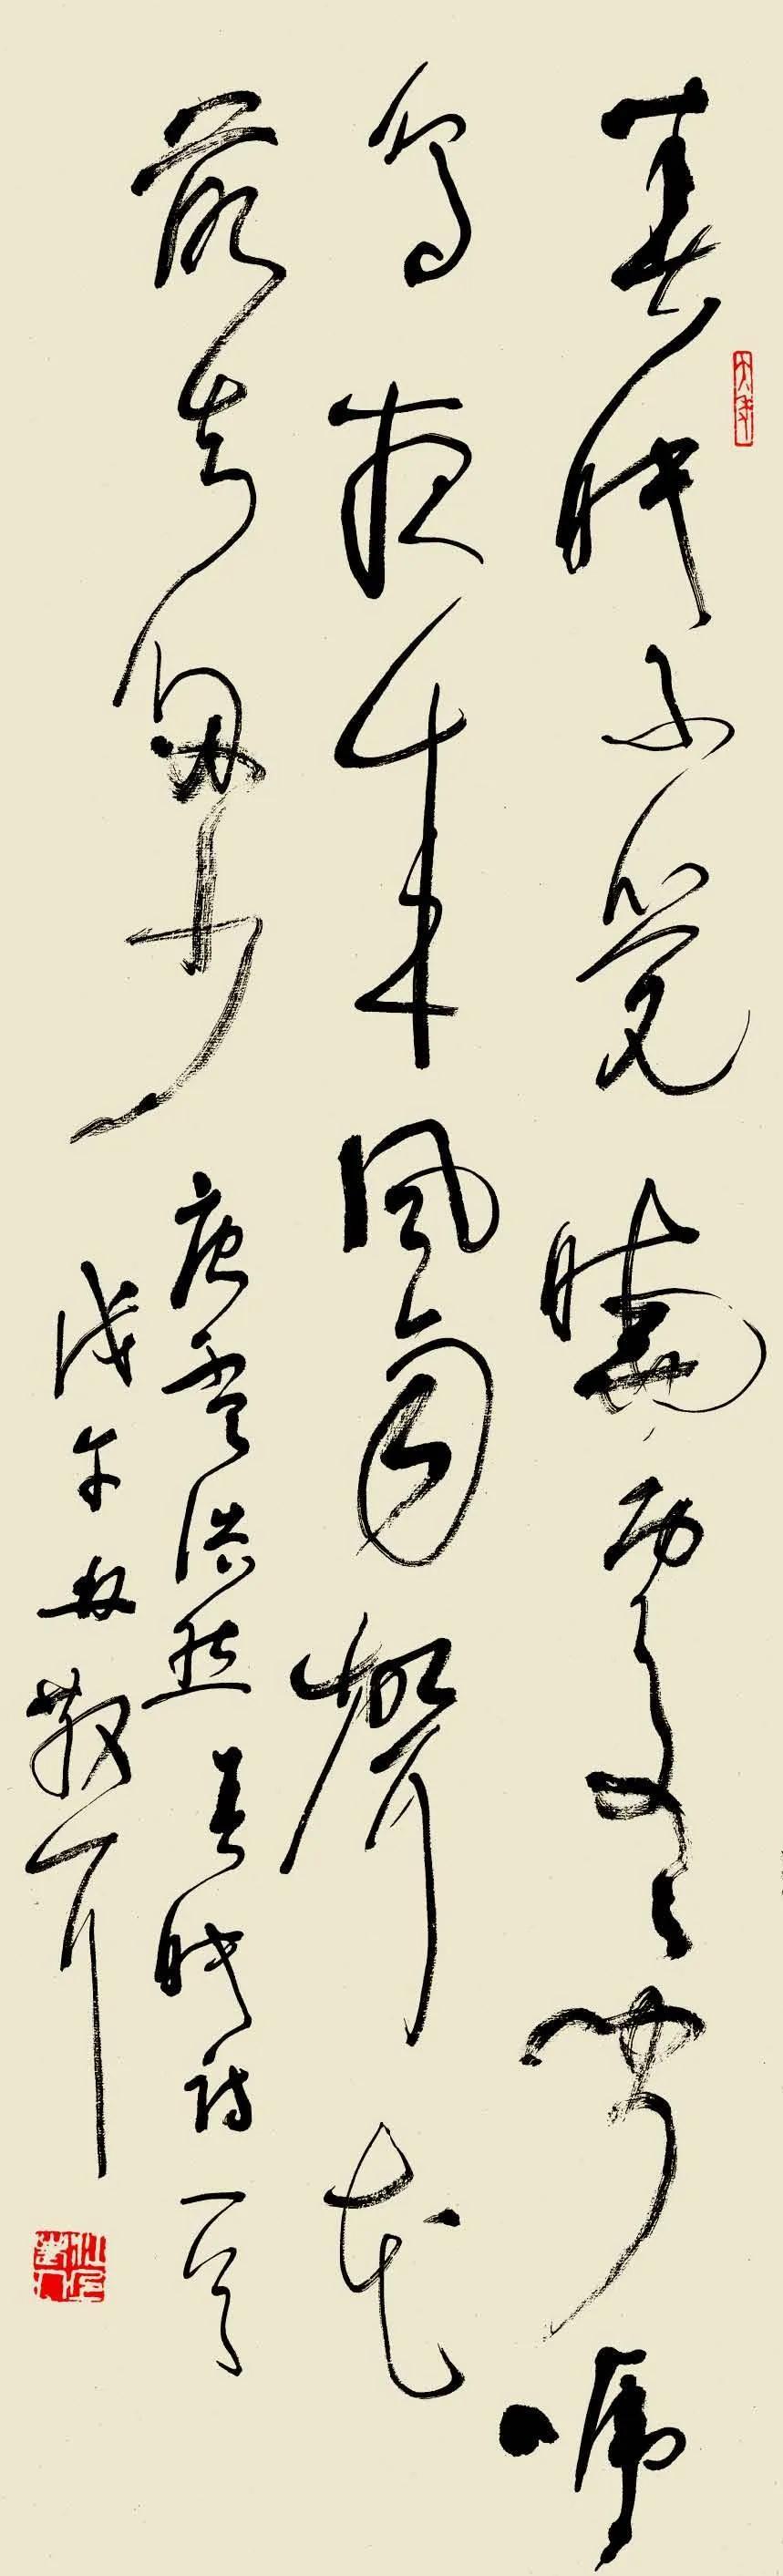 春眠不覺曉處々聞啼
鳥夜來風雨聲花
落知多少 唐孟浩然春眠詩一首
戊午林散耳